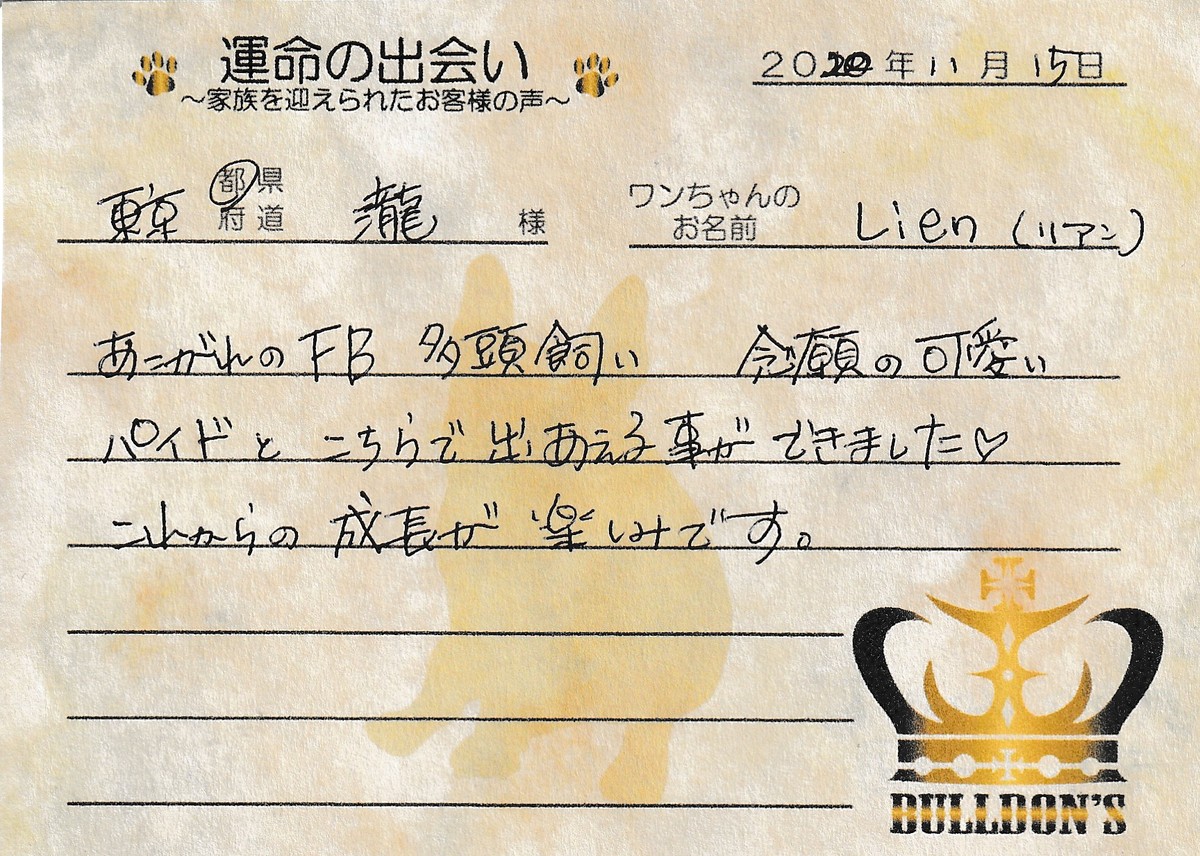 運命の出会い
～家族を迎えられたお客様の声～
20 年 11 月 15日
東京 都県府道 瀧 様
ワンちゃんのお名前 Lien (リアン)
あこがれのFB 多頭飼い 念願の可愛い
パイドと こちらで 出あえる事が できました♡
これからの 成長が 楽しみです。
BULLDON'S